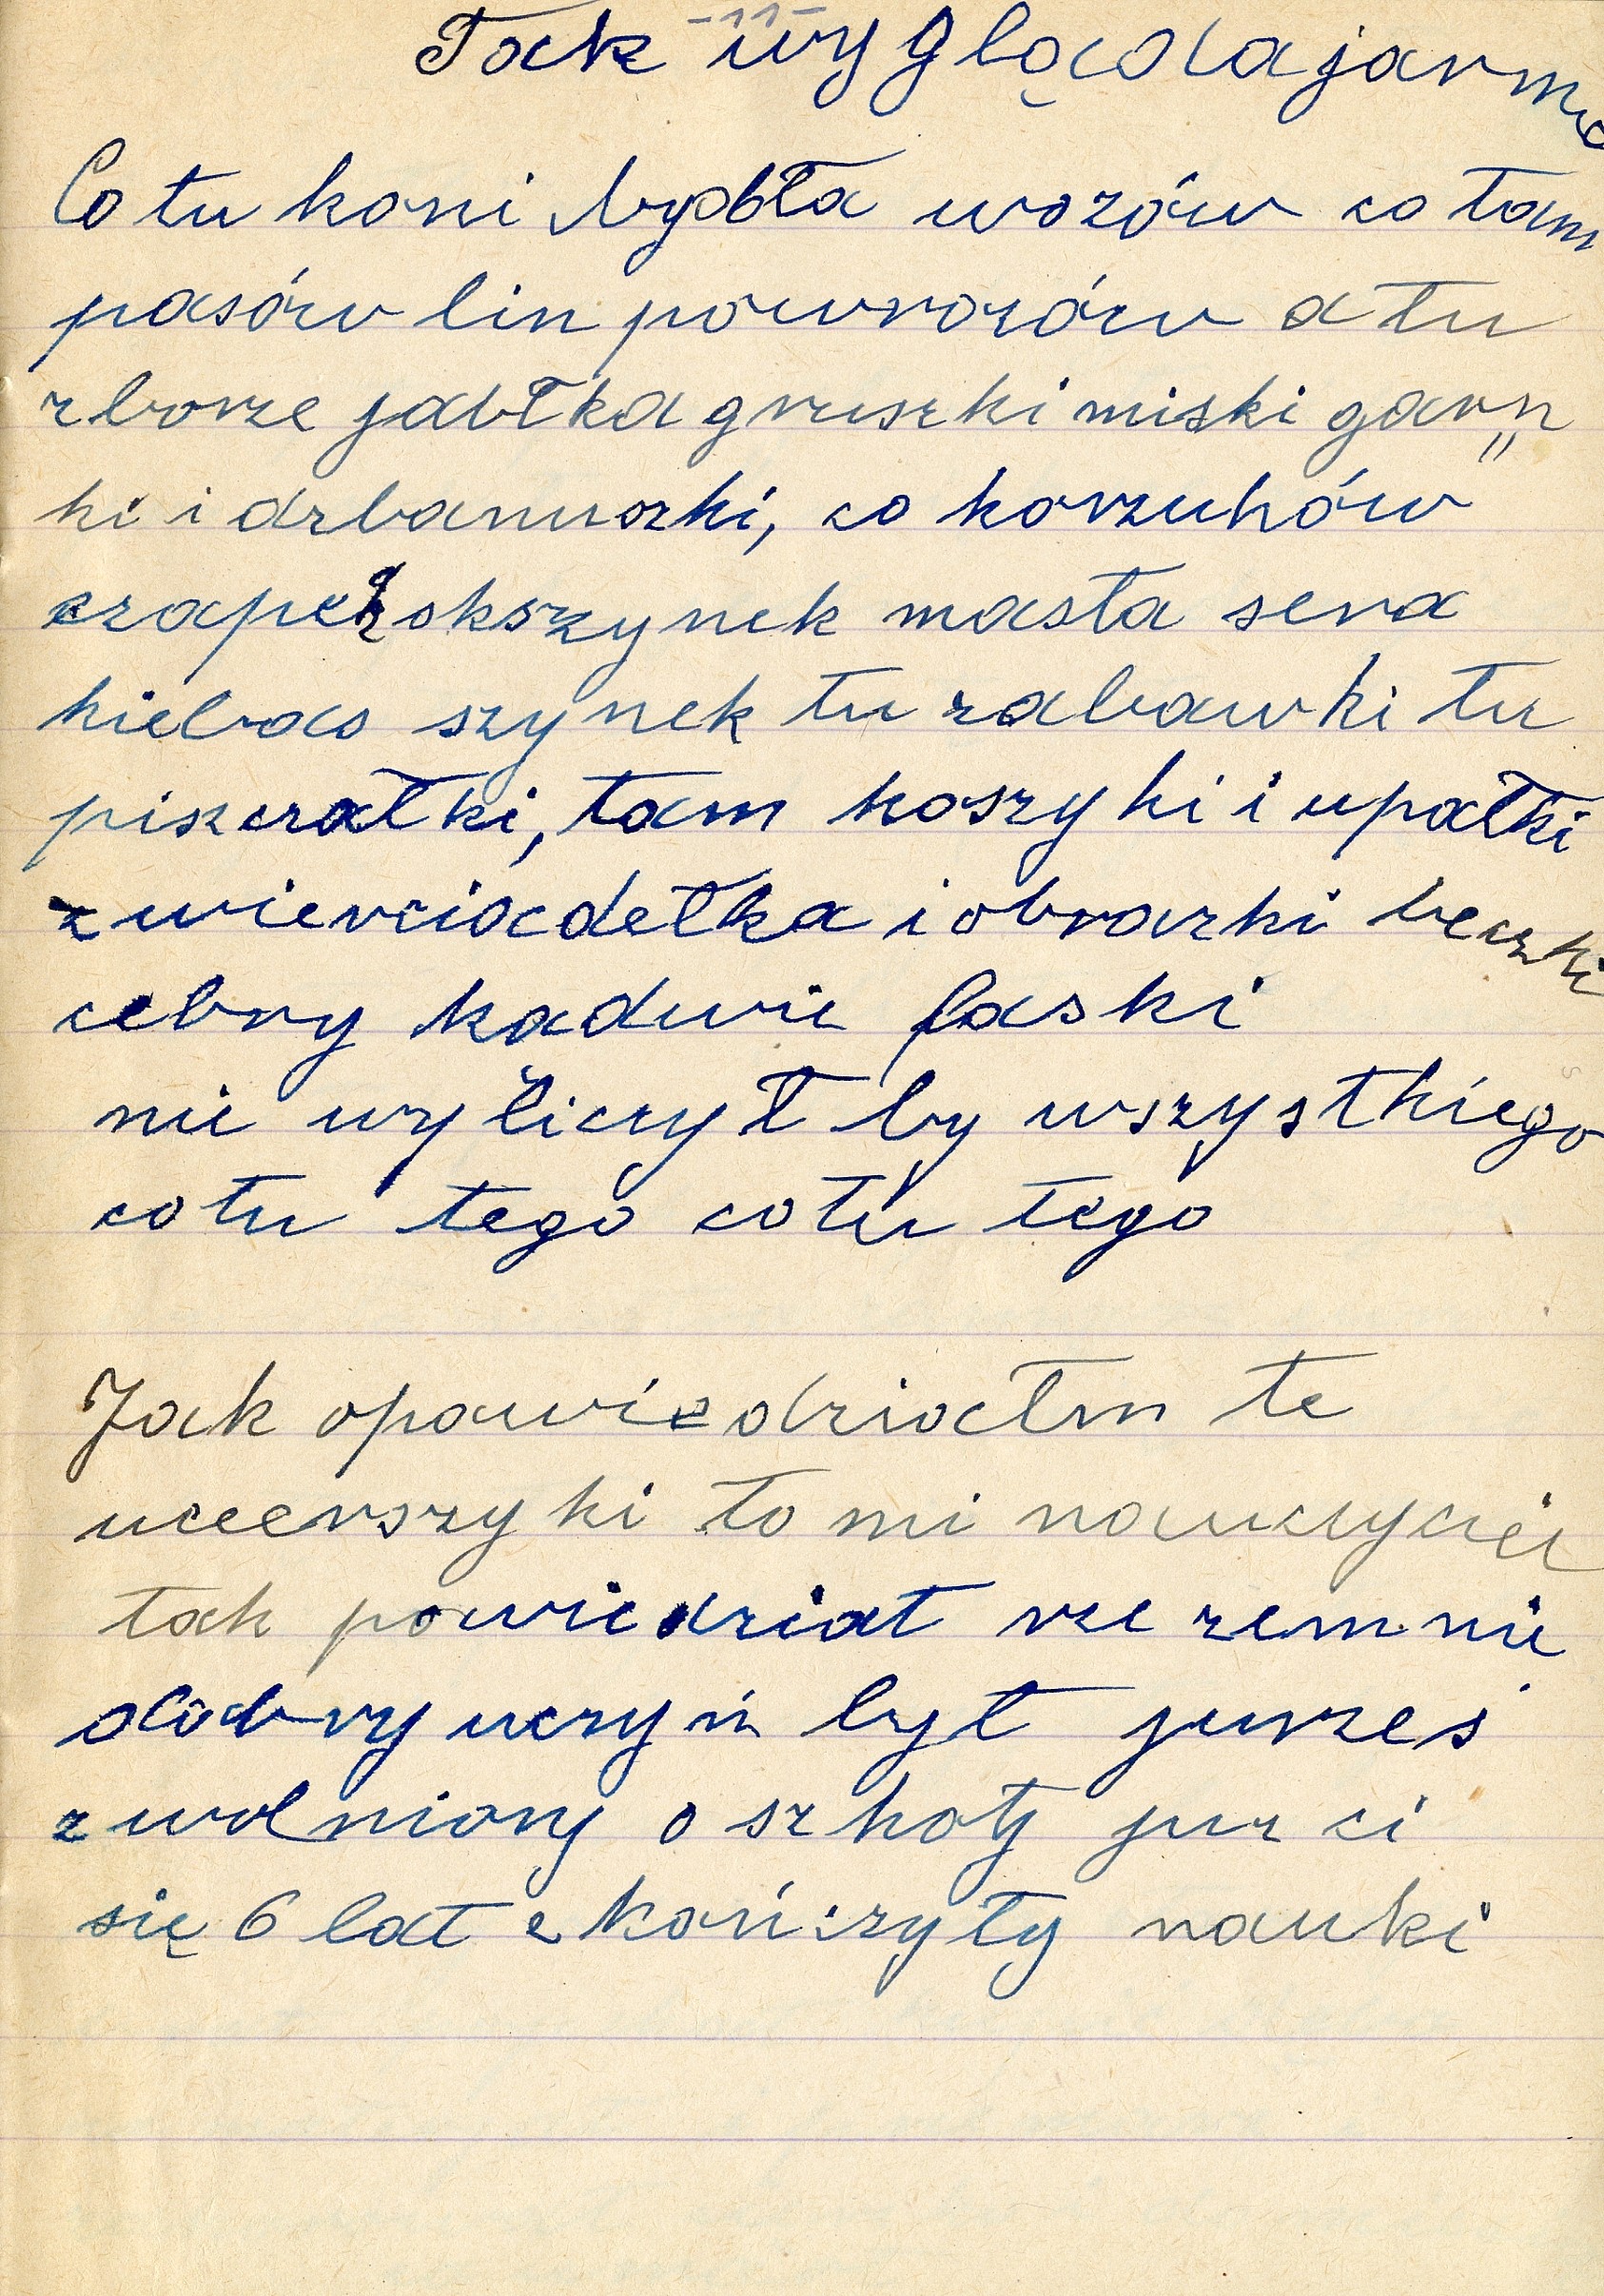 -11-
Tak wygląda jarma
Co tu koni bydła wozów co tam
pasów lin powrozów a tu
zborze jabłka gruszki miski garn
ki i dzbanuszki, co korzuhów
czapek skszynek masła sera
kiebas szynek tu zabawki tu
piszczałki, tam koszyki i upałki
zwierciadełka i obrazki beczki
cebry kadwie faski
nie wyliczył by wszystkiego
co tu tego co tu tego
Jak opowiedziałm te
wierszyki to mi nauczyciel
tak powiedziat rze zemnie
dobry uczyń był jurześ
zwolniony o szkoły jur ci
się 6 lat skończyły nauki